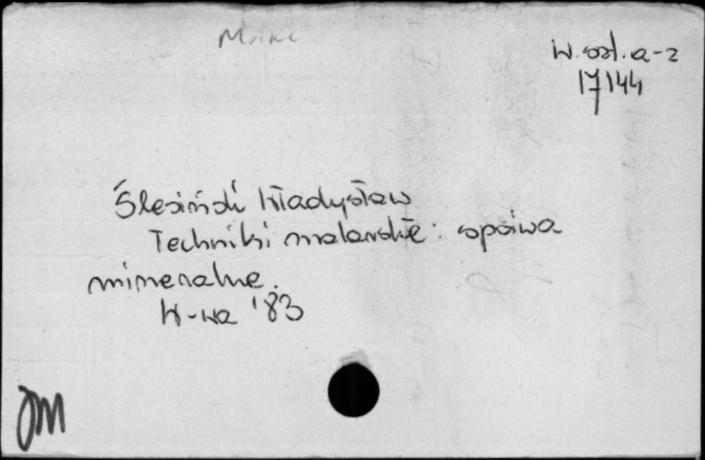 W. szt. a-z
17144
Ślesiński Władysław
Techniki malarskie: spoiwa
mineralne.
W-wa '83
JM